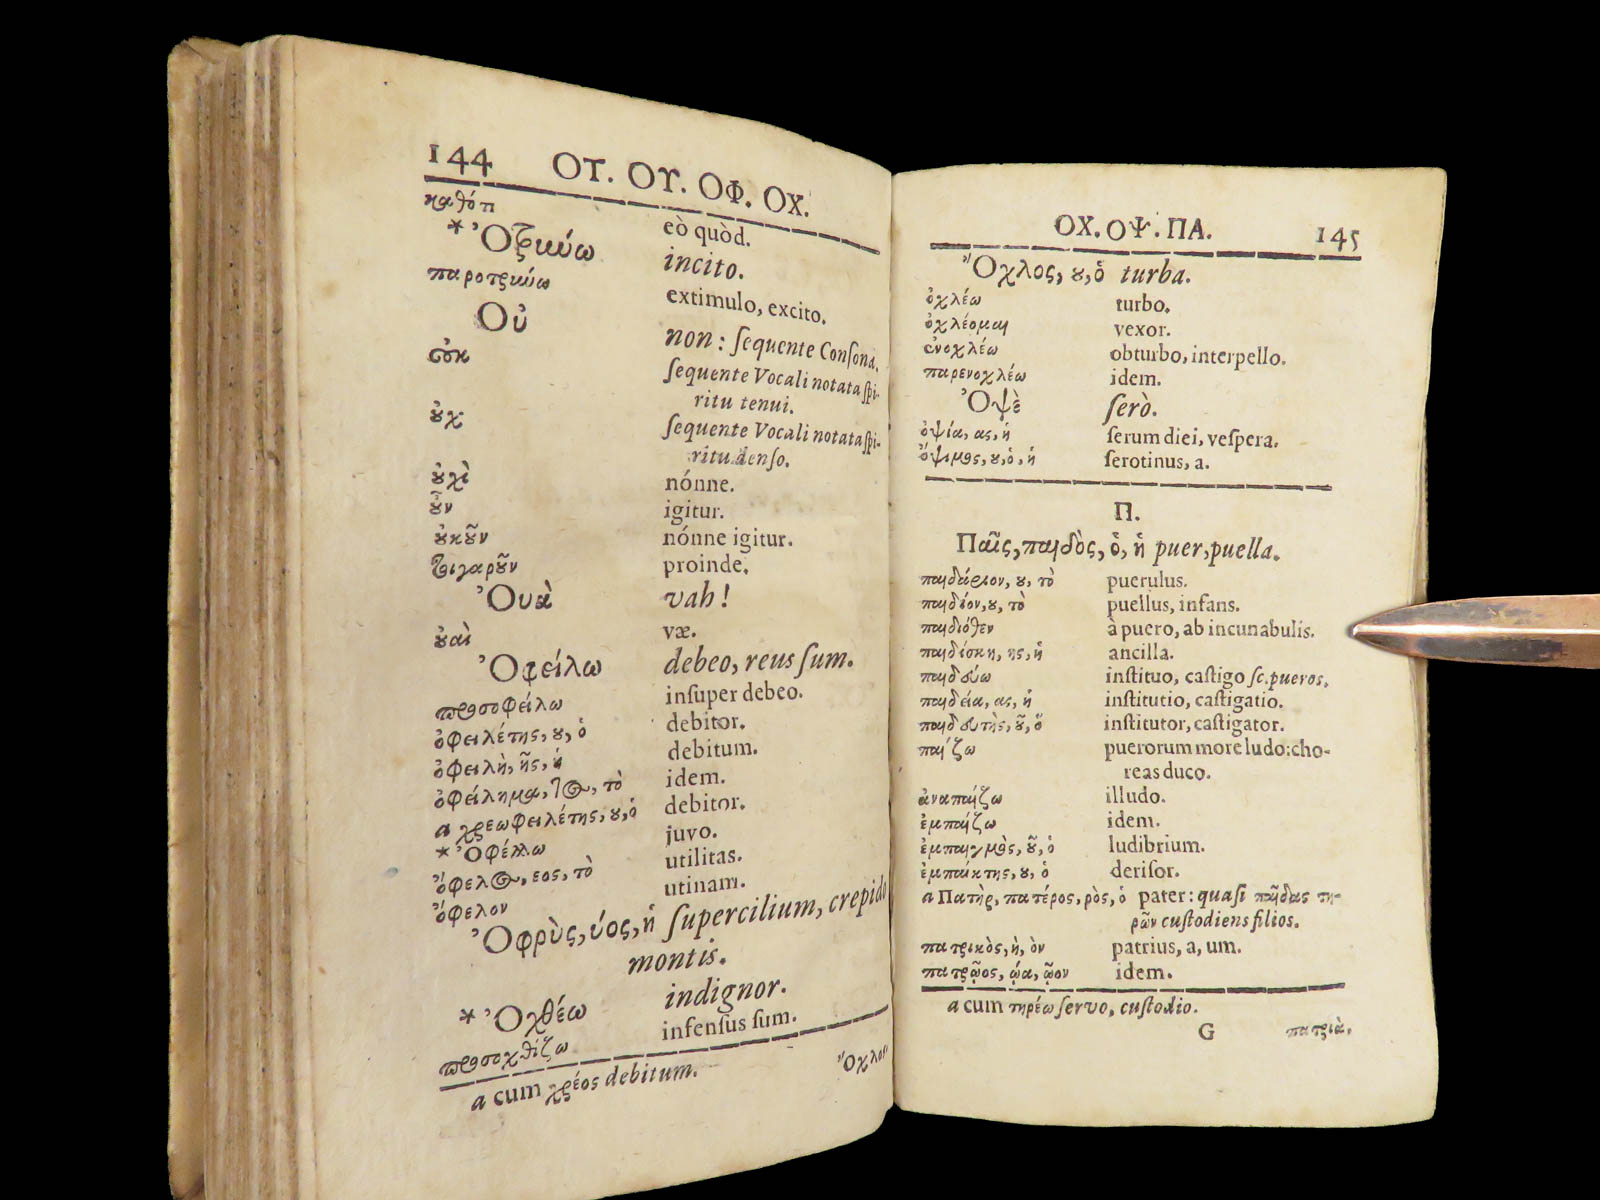 144 ΟΤ. ΟΥ. ΟΦ. ΟΧ.
καθότι eò quòd.
* Ὀτρύνω incito.
παροτρύνω extimulo, excito.
Οὐ non: ſequente Conſona.
οὐκ ſequente Vocali notata ſpi-
ritu tenui.
οὐχ ſequente Vocali notata ſpi-
ritu denſo.
οὐχὶ nónne.
οὖν igitur.
οὐκοῦν nónne igitur.
τοιγαροῦν proinde.
Ὀυὰ vah!
οὐαὶ væ.
Ὀφείλω debeo, reus ſum.
προσοφείλω inſuper debeo.
ὀφειλέτης, ου, ὁ debitor.
ὀφειλὴ, ῆς, ἡ debitum.
ὀφείλημα, τος, τὸ idem.
a χρεωφειλέτης, ου, ὁ debitor.
* Ὀφέλλω juvo.
ὄφελος, εος, τὸ utilitas.
ὄφελον utinam.
Ὀφρὺς, ύος, ἡ ſupercilium, crepido
montis.
* Ὀχθέω indignor.
προσοχθίζω infenſus ſum.
a cum χρέος debitum.
Ὄχλος
ΟΧ. ΟΨ. ΠΑ. 145
Ὄχλος, ου, ὁ turba.
ὀχλέω turbo.
ὀχλέομαι vexor.
ἐνοχλέω obturbo, interpello.
παρενοχλέω idem.
Ὀψὲ ſerò.
ὀψία, ας, ἡ ſerum diei, veſpera.
ὄψιμος, ου, ὁ, ἡ ſerotinus, a.
Π.
Παῖς, παιδὸς, ὁ, ἡ puer, puella.
παιδάριον, ου, τὸ puerulus.
παιδίον, ου, τὸ puellus, infans.
παιδιόθεν à puero, ab incunabulis.
παιδίσκη, ης, ἡ ancilla.
παιδεύω inſtituo, caſtigo ſc. pueros.
παιδεία, ας, ἡ inſtitutio, caſtigatio.
παιδευτὴς, οῦ, ὁ inſtitutor, caſtigator.
παίζω puerorum more ludo: cho-
reas duco.
ἀναπαίζω illudo.
ἐμπαίζω idem.
ἐμπαιγμὸς, οῦ, ὁ ludibrium.
ἐμπαίκτης, ου, ὁ deriſor.
a Πατὴρ, πατέρος, ρὸς, ὁ pater: quaſi παῖδας τη-
ρῶν cuſtodiens filios.
πατρικὸς, ὴ, ὸν patrius, a, um.
πατρῷος, ῴα, ῷον idem.
a cum τηρέω ſervo, cuſtodio.
G πατριὰ,